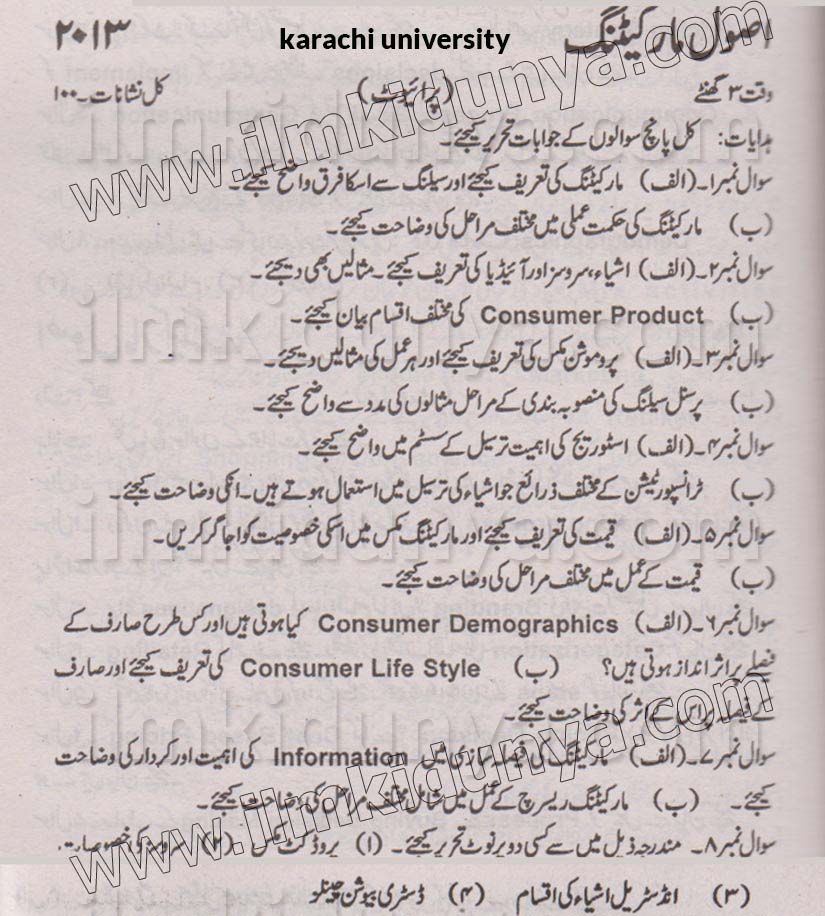 اصول مارکیٹنگ karachi university ۲۰۱۳
وقت ۳ گھنٹے (پرائیوٹ) کل نشانات۔۱۰۰
ہدایات: کل پانچ سوالوں کے جوابات تحریر کیجئے۔
سوال نمبر۱۔(الف) مارکیٹنگ کی تعریف کیجئے اور سیلنگ سے اسکا فرق واضح کیجئے۔
(ب) مارکیٹنگ کی حکمت عملی میں مختلف مراحل کی وضاحت کیجئے۔
سوال نمبر۲۔(الف) اشیاء، سروسز اور آئیڈیا کی تعریف کیجئے۔ مثالیں بھی دیجئے۔
(ب) Consumer Product کی مختلف اقسام بیان کیجئے۔
سوال نمبر۳۔(الف) پروموشن مکس کی تعریف کیجئے اور ہر عمل کی مثالیں دیجئے۔
(ب) پرسنل سیلنگ کی منصوبہ بندی کے مراحل مثالوں کی مدد سے واضح کیجئے۔
سوال نمبر۴۔(الف) اسٹوریج کی اہمیت ترسیل کے سسٹم میں واضح کیجئے۔
(ب) ٹرانسپورٹیشن کے مختلف ذرائع جو اشیاء کی ترسیل میں استعمال ہوتے ہیں۔ انکی وضاحت کیجئے۔
سوال نمبر۵۔(الف) قیمت کی تعریف کیجئے اور مارکیٹنگ مکس میں اسکی خصوصیت کو اجاگر کریں۔
(ب) قیمت کے عمل میں مختلف مراحل کی وضاحت کیجئے۔
سوال نمبر۶۔(الف) Consumer Demographics کیا ہوتی ہیں اور کس طرح صارف کے
فیصلے پر اثر انداز ہوتی ہیں؟ (ب) Consumer Life Style کی تعریف کیجئے اور صارف
کے فیصلہ پر اس کے اثر کی وضاحت کیجئے۔
سوال نمبر۷۔(الف) مارکیٹنگ کی فیصلہ سازی میں Information کی اہمیت اور کردار کی وضاحت
کیجئے۔ (ب) مارکیٹنگ ریسرچ کے عمل میں شامل مختلف مراحل کی وضاحت کیجئے۔
سوال نمبر۸۔ مندرجہ ذیل میں سے کسی دو پر نوٹ تحریر کیجئے۔ (۱) پروڈکٹ مکس (۲) سروسز کی خصوصیات
(۳) انڈسٹریل اشیاء کی اقسام (۴) ڈسٹری بیوشن چینلز
www.ilmkidunya.com
ilmkidunya.com
ilmkidunya.com
ilmkidunya.com
www.ilmkidunya.com